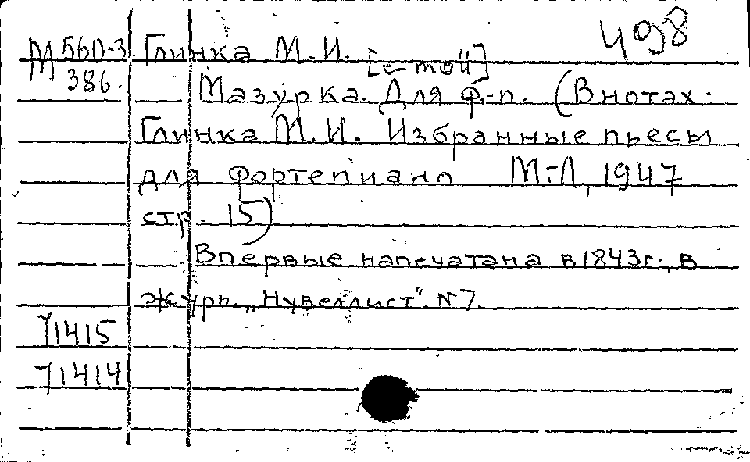 498
М 560-3 Глинка М.И.
386. [c-moll]
Мазурка. Для ф-п. (В нотах.
Глинка М.И. Избранные пьесы
для фортепиано М-Л, 1947
стр. 15)
Впервые напечатана в 1843г., в
журн. „Нувеллист". N7.
71415
71414